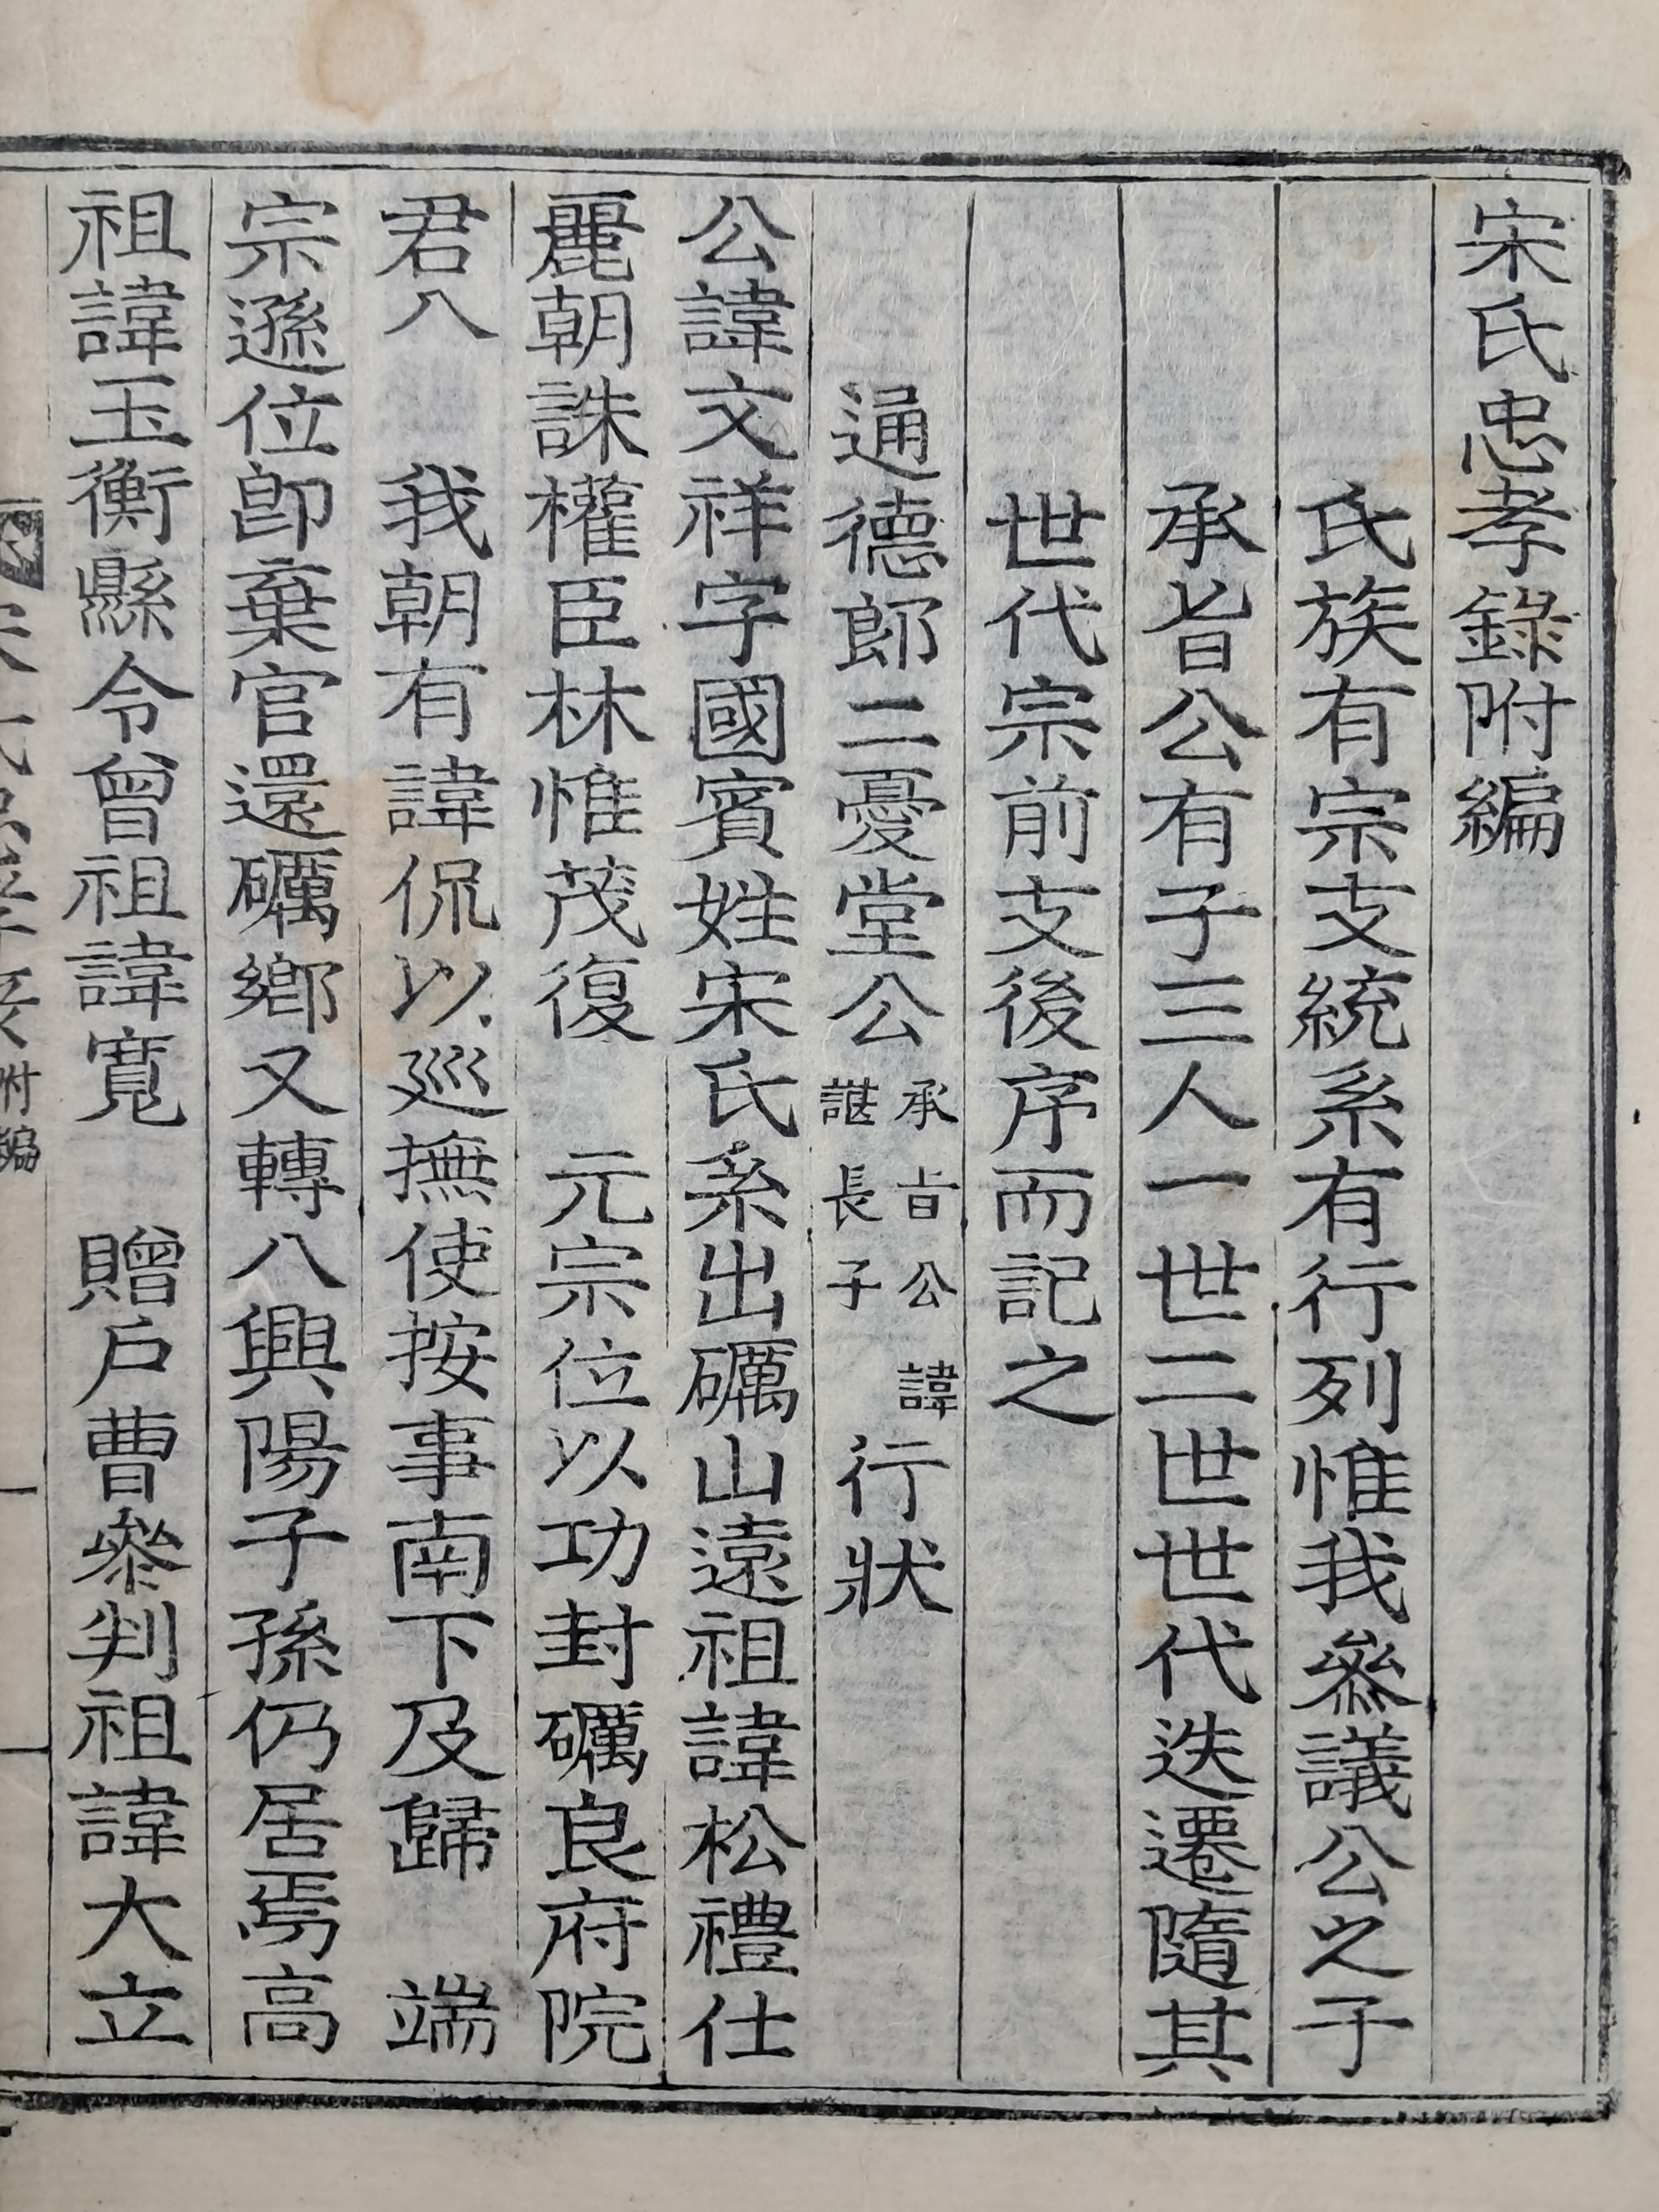 宋氏忠孝錄附編
氏族有宗支統系有行列惟我叅議公之子
承旨公有子三人一世二世世代迭遷隨其
世代宗前支後序而記之
通德郎二憂堂公承旨公諱諶長子行狀
公諱文祥字國賓姓宋氏系出礪山遠祖諱松禮仕
麗朝誅權臣林惟茂復 元宗位以功封礪良府院
君入 我朝有諱侃以巡撫使按事南下及歸 端
宗遜位卽棄官還礪鄉又轉入興陽子孫仍居焉高
祖諱玉衡縣令曾祖諱寬 贈戶曹叅判祖諱大立
附編
一